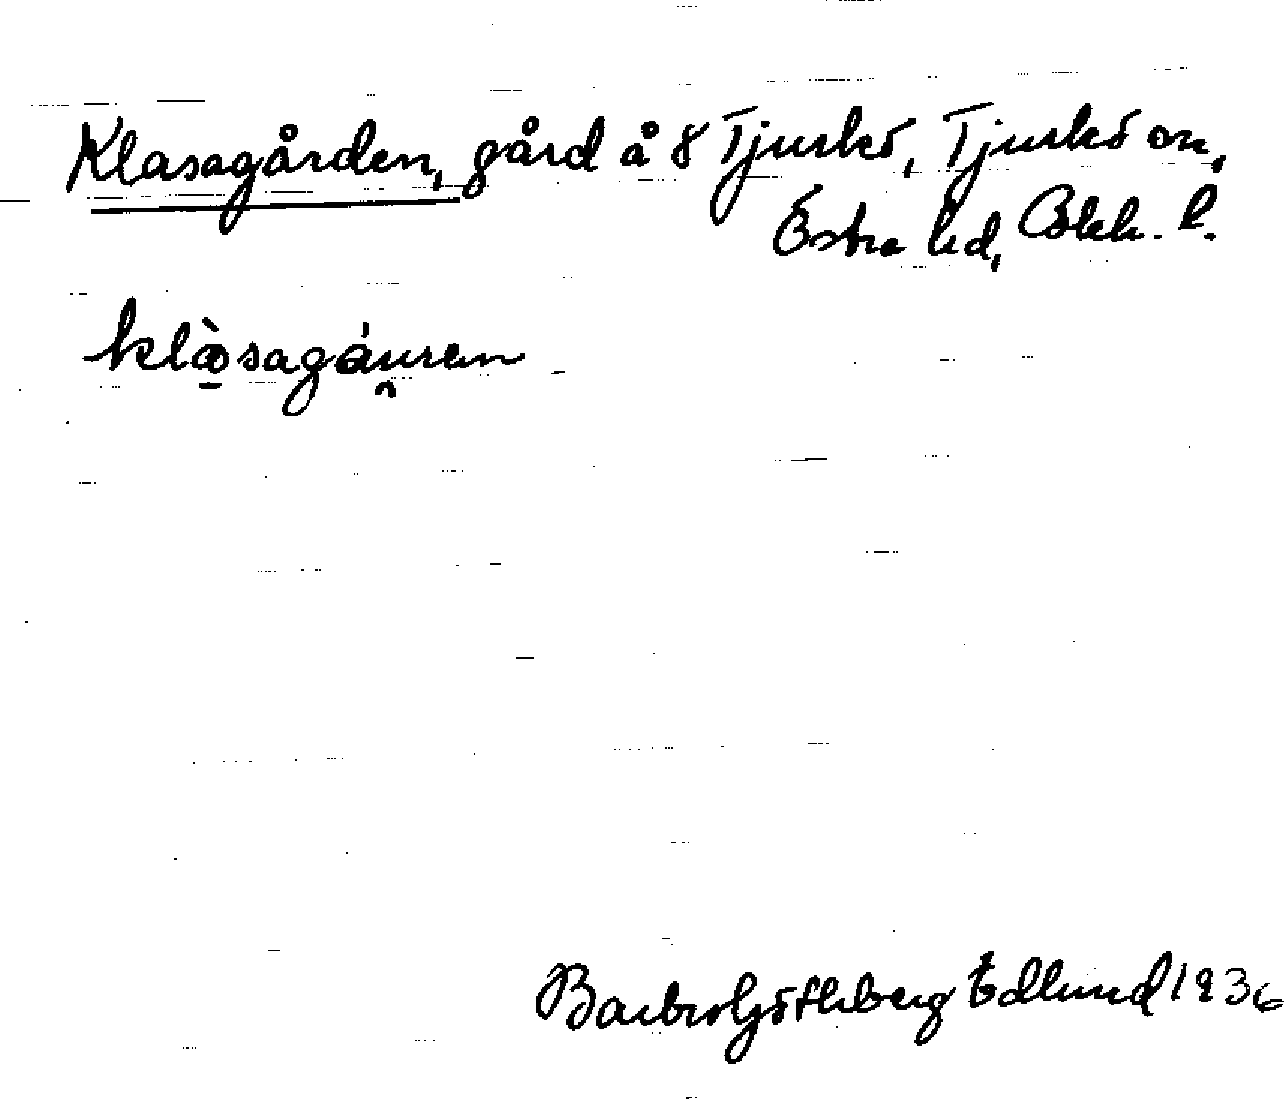 Klasagården, gård å 8 Tjurkö, Tjurkö sn,
Östra hd, Blek. l.
klɑ̀sagáuren
Barbro Göthberg Edlund 1936